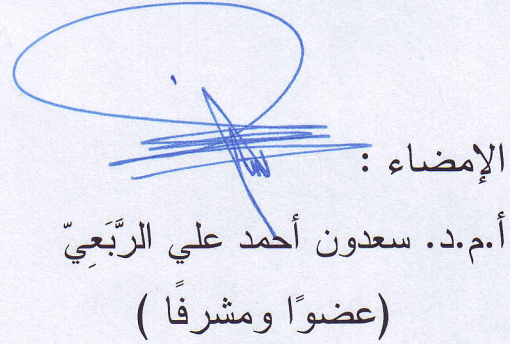 الإمضاء :
أ.م.د. سعدون أحمد علي الرَّبَعِيّ
(عضوًا ومشرفًا )